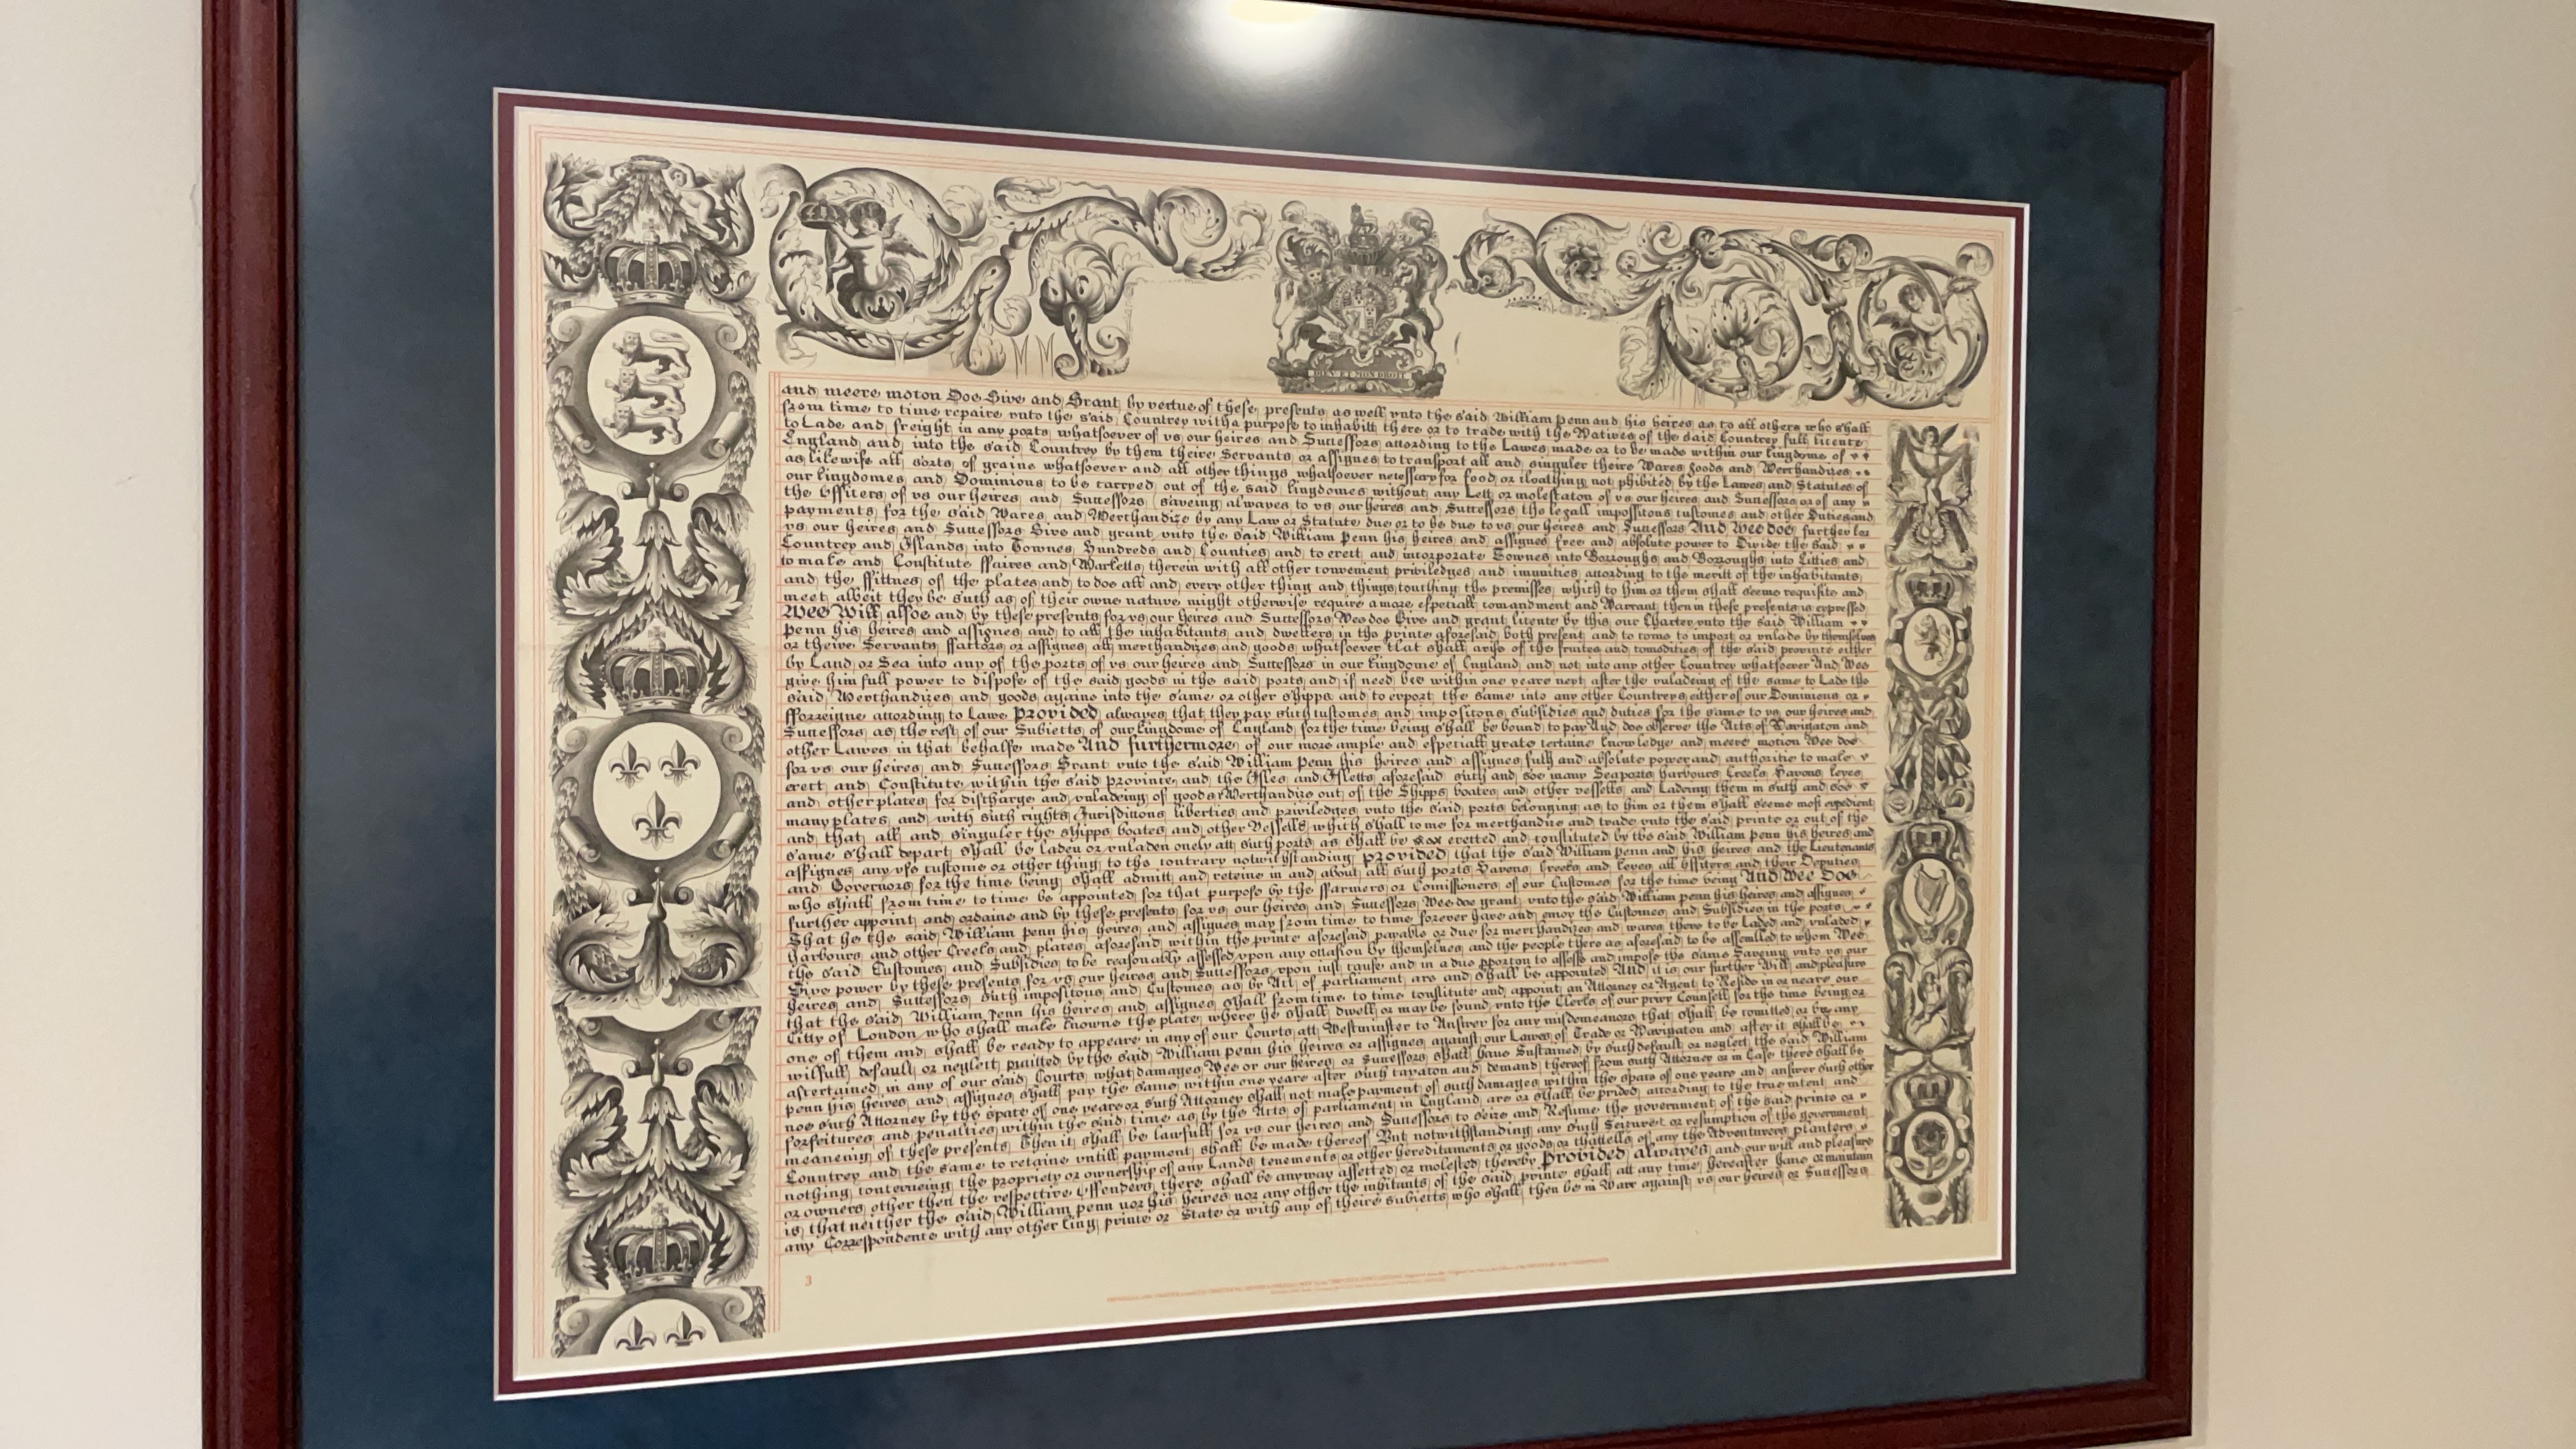 DIEV ET MON DROIT
and meere motion Doe Give and Grant by vertue of these presents as well vnto the said William Penn and his heires as to all others who shall
from time to time repaire vnto the said Countrey with a purpose to inhabitt there or to trade with the Natives of the said Countrey full licence
to Lade and freight in any ports whatsoever of vs our heires and Successors according to the Lawes made or to be made within our kingdome of
England and into the said Countrey by them theire Servants or assignes to transport all and singuler theire Wares goods and Merchandizes
as likewise all sorts of graine whatsoever and all other things whatsoever necessary for food or cloathing not phibited by the Lawes and Statutes of
our kingdomes and Dominions to be carryed out of the said kingdomes without any Lett or molestaton of vs our heires and Successors or of any
the Officers of vs our heires and Successors saveing alwayes to vs our heires and Successors the legall impositons customes and other Duties and
payments for the said Wares and Merchandize by any Law or Statute due or to be due to vs our heires and Successors And Wee doe further for
vs our heires and Successors Give and grant vnto the said William Penn his heires and assignes free and absolute power to Divide the said
Countrey and Islands into Townes Hundreds and Counties and to erect and incorporate Townes into Borroughs and Borroughs into Citties and
to make and Constitute ffaires and Marketts therein with all other convenient priviledges and imunities according to the meritt of the inhabitants
and the fittnes of the places and to doe all and every other thing and things touching the premisses which to him or them shall seeme requisite and
meet albeit they be such as of their owne nature might otherwise require a more especiall comandment and Warrant then in these presents is expressed
Wee Will alsoe and by these presents for vs our heires and Successors Wee doe Give and grant licence by this our Charter vnto the said William
Penn his heires and assignes and to all the inhabitants and dwellers in the pvince aforesaid both present and to come to import or vnlade by themselves
or theire Servants ffactors or assignes all merchandizes and goods whatsoever that shall arise of the fruites and comodities of the said province either
by Land or Sea into any of the ports of vs our heires and Successors in our kingdome of England and not into any other Countrey whatsoever And Wee
give him full power to dispose of the said goods in the said ports and if need bee within one yeare next after the vnladeing of the same to Lade the
said Merchandizes and goods againe into the same or other shipps and to export the same into any other Countreys either of our Dominions or
fforreigne according to Lawe Provided alwayes that they pay such customes and impositons subsidies and duties for the same to vs our heires and
Successors as the rest of our Subiects of our kingdome of England for the time being shall be bound to pay And doe observe the Acts of Navigaton and
other Lawes in that behalfe made And furthermore of our more ample and especiall grace certaine knowledge and meere motion Wee doe
for vs our heires and Successors Grant vnto the said William Penn his heires and assignes full and absolute power and authoritie to make
erect and Constitute within the said province and the Isles and Isletts aforesaid such and soe many Seaports harbours Creeks Havens keyes
and other places for discharge and vnladeing of goods & Merchandize out of the Shipps boates and other vessells and Ladeing them in such and soe
many places and with such rights Jurisdictions liberties and priviledges vnto the said ports belonging as to him or them shall seeme most expedient
and that all and singuler the shipps boates and other Vessells which shall come for merchandize and trade vnto the said pvince or out of the
same shall depart shall be laden or vnladen onely att such ports as shall be soe erected and constituted by the said William Penn his heires and
assignes any vse custome or other thing to the contrary notwithstanding Provided that the said William Penn and his heires and the Lieutenants
and Governors for the time being shall admitt and receive in and about all such ports Havens Creeks and keyes all Officers and their Deputies
who shall from time to time be appointed for that purpose by the ffarmers or Comissioners of our Customes for the time being And Wee Doe
further appoint and ordaine and by these presents for vs our heires and Successors Wee doe grant vnto the said William Penn his heires and assignes
That he the said William Penn his heires and assignes may from time to time forever have and enioy the Customes and Subsidies in the ports
harbours and other Creeks and places aforesaid within the pvince aforesaid payable or due for merchandizes and wares there to be Laded and vnladed
the said Customes and Subsidies to be reasonably assessed vpon any occasion by themselves and the people there as aforesaid to be assembled to whom Wee
Give power by these presents for vs our heires and Successors vpon iust cause and in a due pporton to assesse and impose the same Saveing vnto vs our
heires and Successors such impositons and Customes as by Act of parliament are and shall be appointed And it is our further Will and pleasure
that the said William Penn his heires and assignes shall from time to time constitute and appoint an Attorney or Agent to Reside in or neare our
Citty of London who shall make knowne the place where he shall dwell or may be found vnto the Clerks of our privy Counsell for the time being or
one of them and shall be ready to appeare in any of our Courts att Westminster to Answer for any misdemeanors that shall be comitted or by any
wilfull default or neglect pmitted by the said William Penn his heires or assignes against our Lawes of Trade or Navigaton and after it shall be
ascertained in any of our said Courts what damages Wee or our heires or Successors shall have Sustained by such default or neglect the said William
Penn his heires and assignes shall pay the same within one yeare after such taxaton and demand thereof from such Attorney or in Case there shall be
noe such Attorney by the space of one yeare or such Attorney shall not make payment of such damages within the space of one yeare and answer such other
forfeitures and penalties within the said time as by the Acts of parliament in England are or shall be pvided according to the true intent and
meaneing of these presents Then it shall be lawfull for vs our heires and Successors to seize and Resume the government of the said pvince or
Countrey and the same to retaine vntill payment shall be made thereof But notwithstanding any such Seizure or resumption of the government
nothing concerneing the propriety or ownership of any Lands tenements or other hereditaments or goods or chattells of any the Adventurers planters
or owners other then the respective Offenders there shall be anyway affected or molested thereby Provided alwayes and our will and pleasure
is that neither the said William Penn nor his heires nor any other the inhitants of the said pvince shall att any time hereafter have or maintain
any Correspondence with any other king prince or State or with any of theire subiects who shall then be in Warr against vs our heires or Successors
3